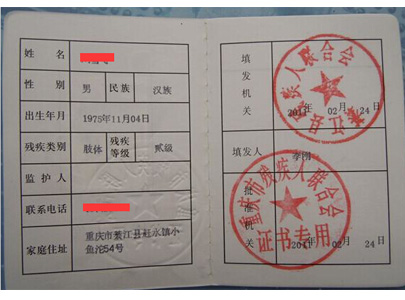 姓 名
性 别 男 民族 汉族
出生年月 1975年11月04日
残疾类别 肢体 残疾等级 贰级
监 护 人
联系电话
家庭住址 重庆市綦江县赶水镇小
鱼沱54号
填发机关
綦江县残疾人联合会
02月 24日
填发人 李明
批准机关
重庆市残疾人联合会
证书专用
02月 24日